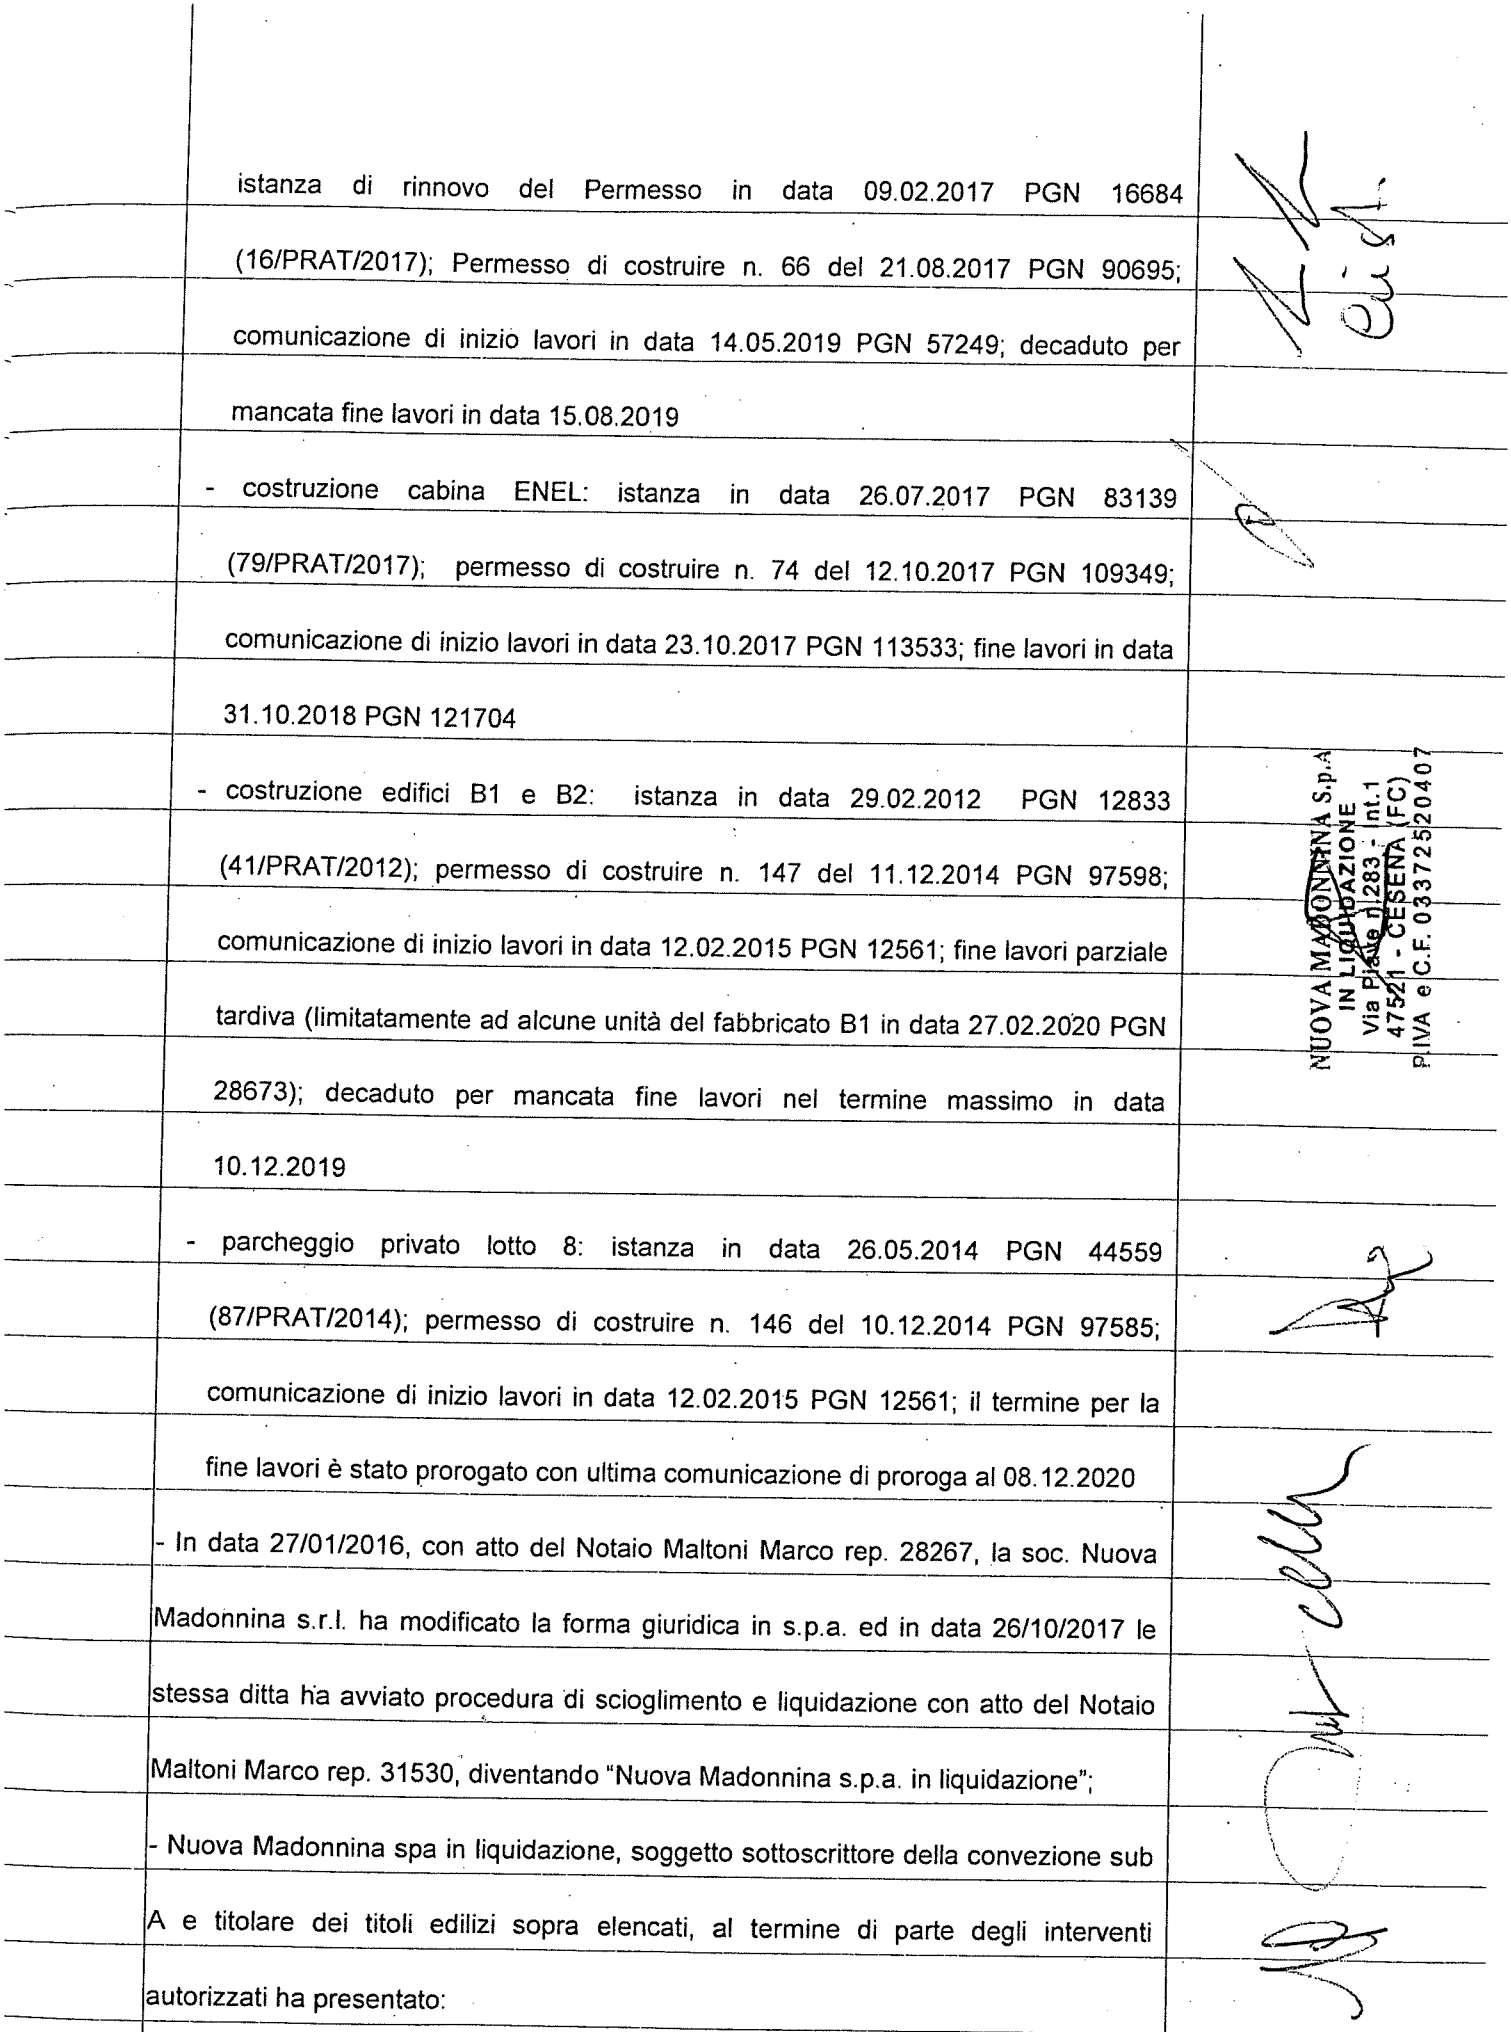 istanza di rinnovo del Permesso in data 09.02.2017 PGN 16684
(16/PRAT/2017); Permesso di costruire n. 66 del 21.08.2017 PGN 90695;
comunicazione di inizio lavori in data 14.05.2019 PGN 57249; decaduto per
mancata fine lavori in data 15.08.2019
- costruzione cabina ENEL: istanza in data 26.07.2017 PGN 83139
(79/PRAT/2017); permesso di costruire n. 74 del 12.10.2017 PGN 109349;
comunicazione di inizio lavori in data 23.10.2017 PGN 113533; fine lavori in data
31.10.2018 PGN 121704
- costruzione edifici B1 e B2: istanza in data 29.02.2012 PGN 12833
(41/PRAT/2012); permesso di costruire n. 147 del 11.12.2014 PGN 97598;
comunicazione di inizio lavori in data 12.02.2015 PGN 12561; fine lavori parziale
tardiva (limitatamente ad alcune unità del fabbricato B1 in data 27.02.2020 PGN
28673); decaduto per mancata fine lavori nel termine massimo in data
10.12.2019
- parcheggio privato lotto 8: istanza in data 26.05.2014 PGN 44559
(87/PRAT/2014); permesso di costruire n. 146 del 10.12.2014 PGN 97585;
comunicazione di inizio lavori in data 12.02.2015 PGN 12561; il termine per la
fine lavori è stato prorogato con ultima comunicazione di proroga al 08.12.2020
- In data 27/01/2016, con atto del Notaio Maltoni Marco rep. 28267, la soc. Nuova
Madonnina s.r.l. ha modificato la forma giuridica in s.p.a. ed in data 26/10/2017 le
stessa ditta ha avviato procedura di scioglimento e liquidazione con atto del Notaio
Maltoni Marco rep. 31530, diventando “Nuova Madonnina s.p.a. in liquidazione”;
- Nuova Madonnina spa in liquidazione, soggetto sottoscrittore della convezione sub
A e titolare dei titoli edilizi sopra elencati, al termine di parte degli interventi
autorizzati ha presentato:
NUOVA MADONNINA S.p.A
IN LIQUIDAZIONE
Via Piave n.283 - Int.1
47521 - CESENA (FC)
P.IVA e C.F. 03372520407